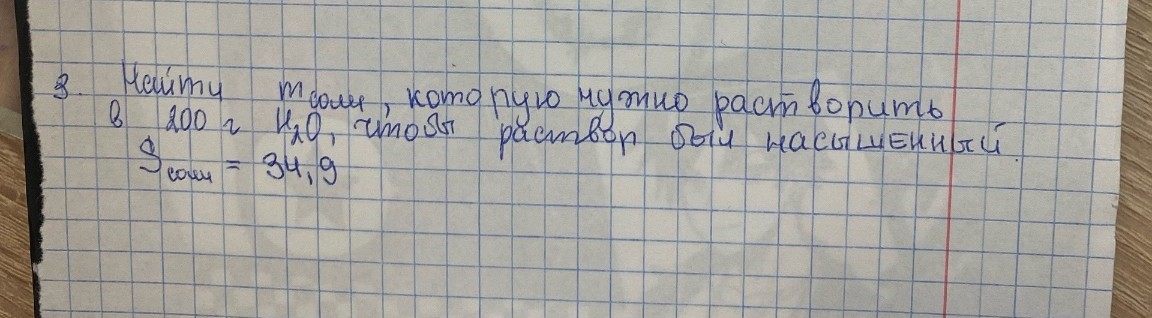 3. Найти m соли, которую нужно растворить
в 200 г H₂O, чтобы раствор был насыщенный.
S соли = 34,9